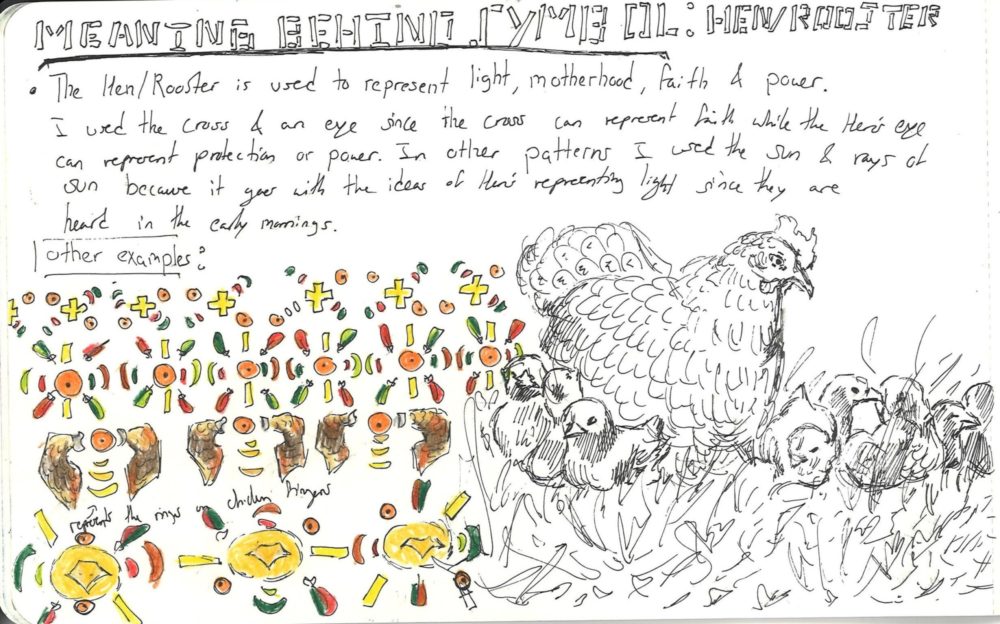 MEANING BEHIND SYMBOL: HEN/ROOSTER
• The Hen/Rooster is used to represent light, motherhood, faith & power.
I used the cross & an eye since the cross can represent faith while the Hen's eye
can represent protection or power. In other patterns I used the sun & rays of
sun because it goes with the ideas of Hen's representing light since they are
heard in the early mornings.
other examples:
represents the rings on chicken fingers